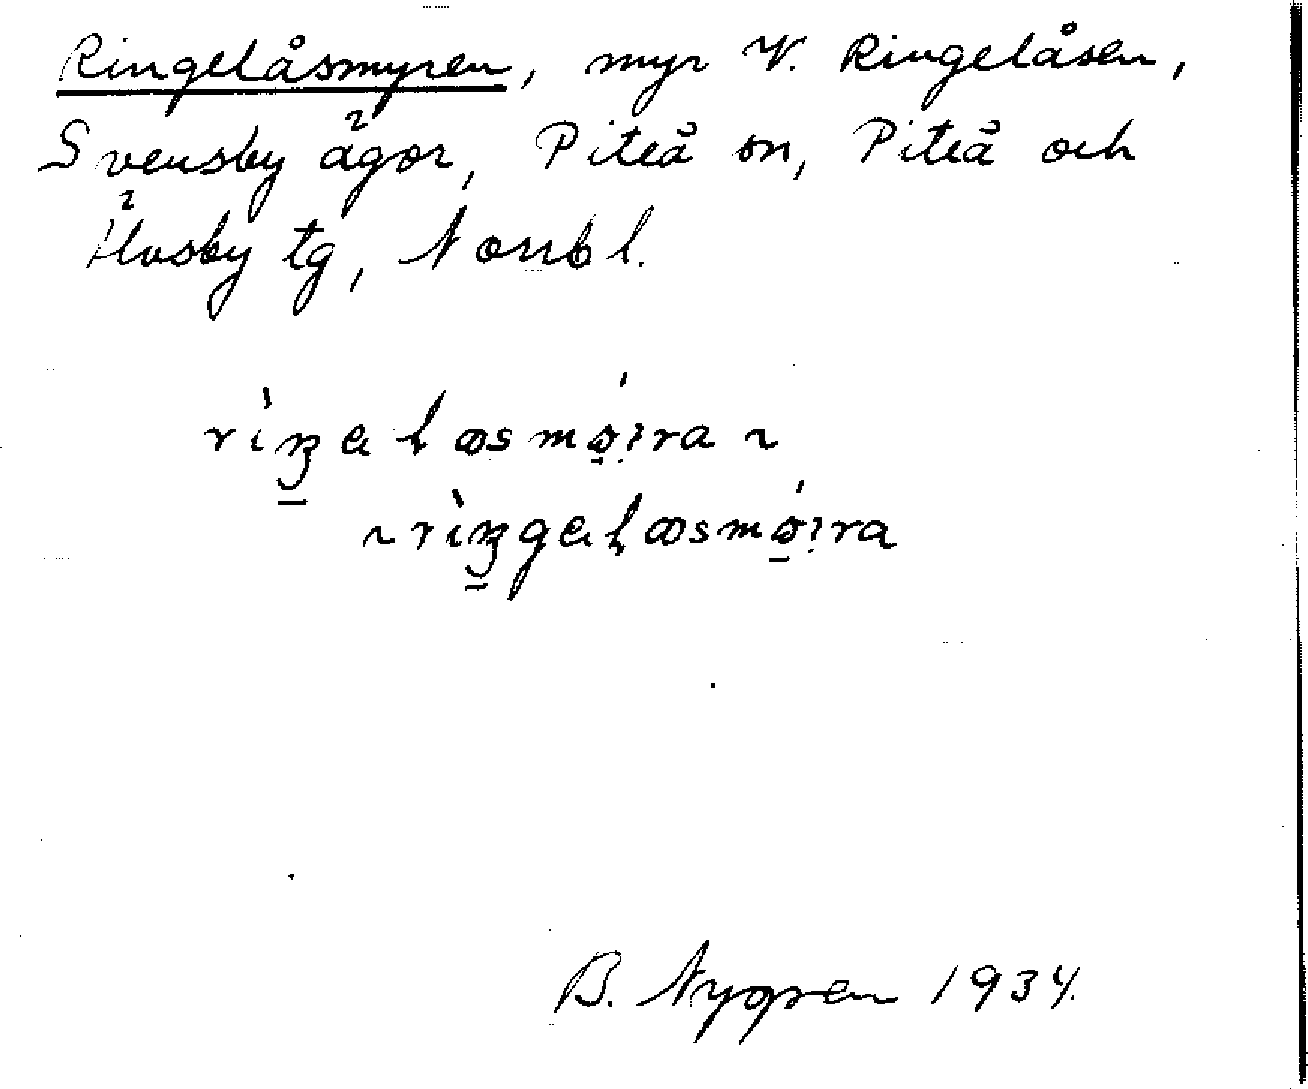 Ringelåsmyren, myr V. Ringelåsen,
Svensby ägor, Piteå sn, Piteå och
Älvsby tg, Norrb l.
B. Nygren 1934.